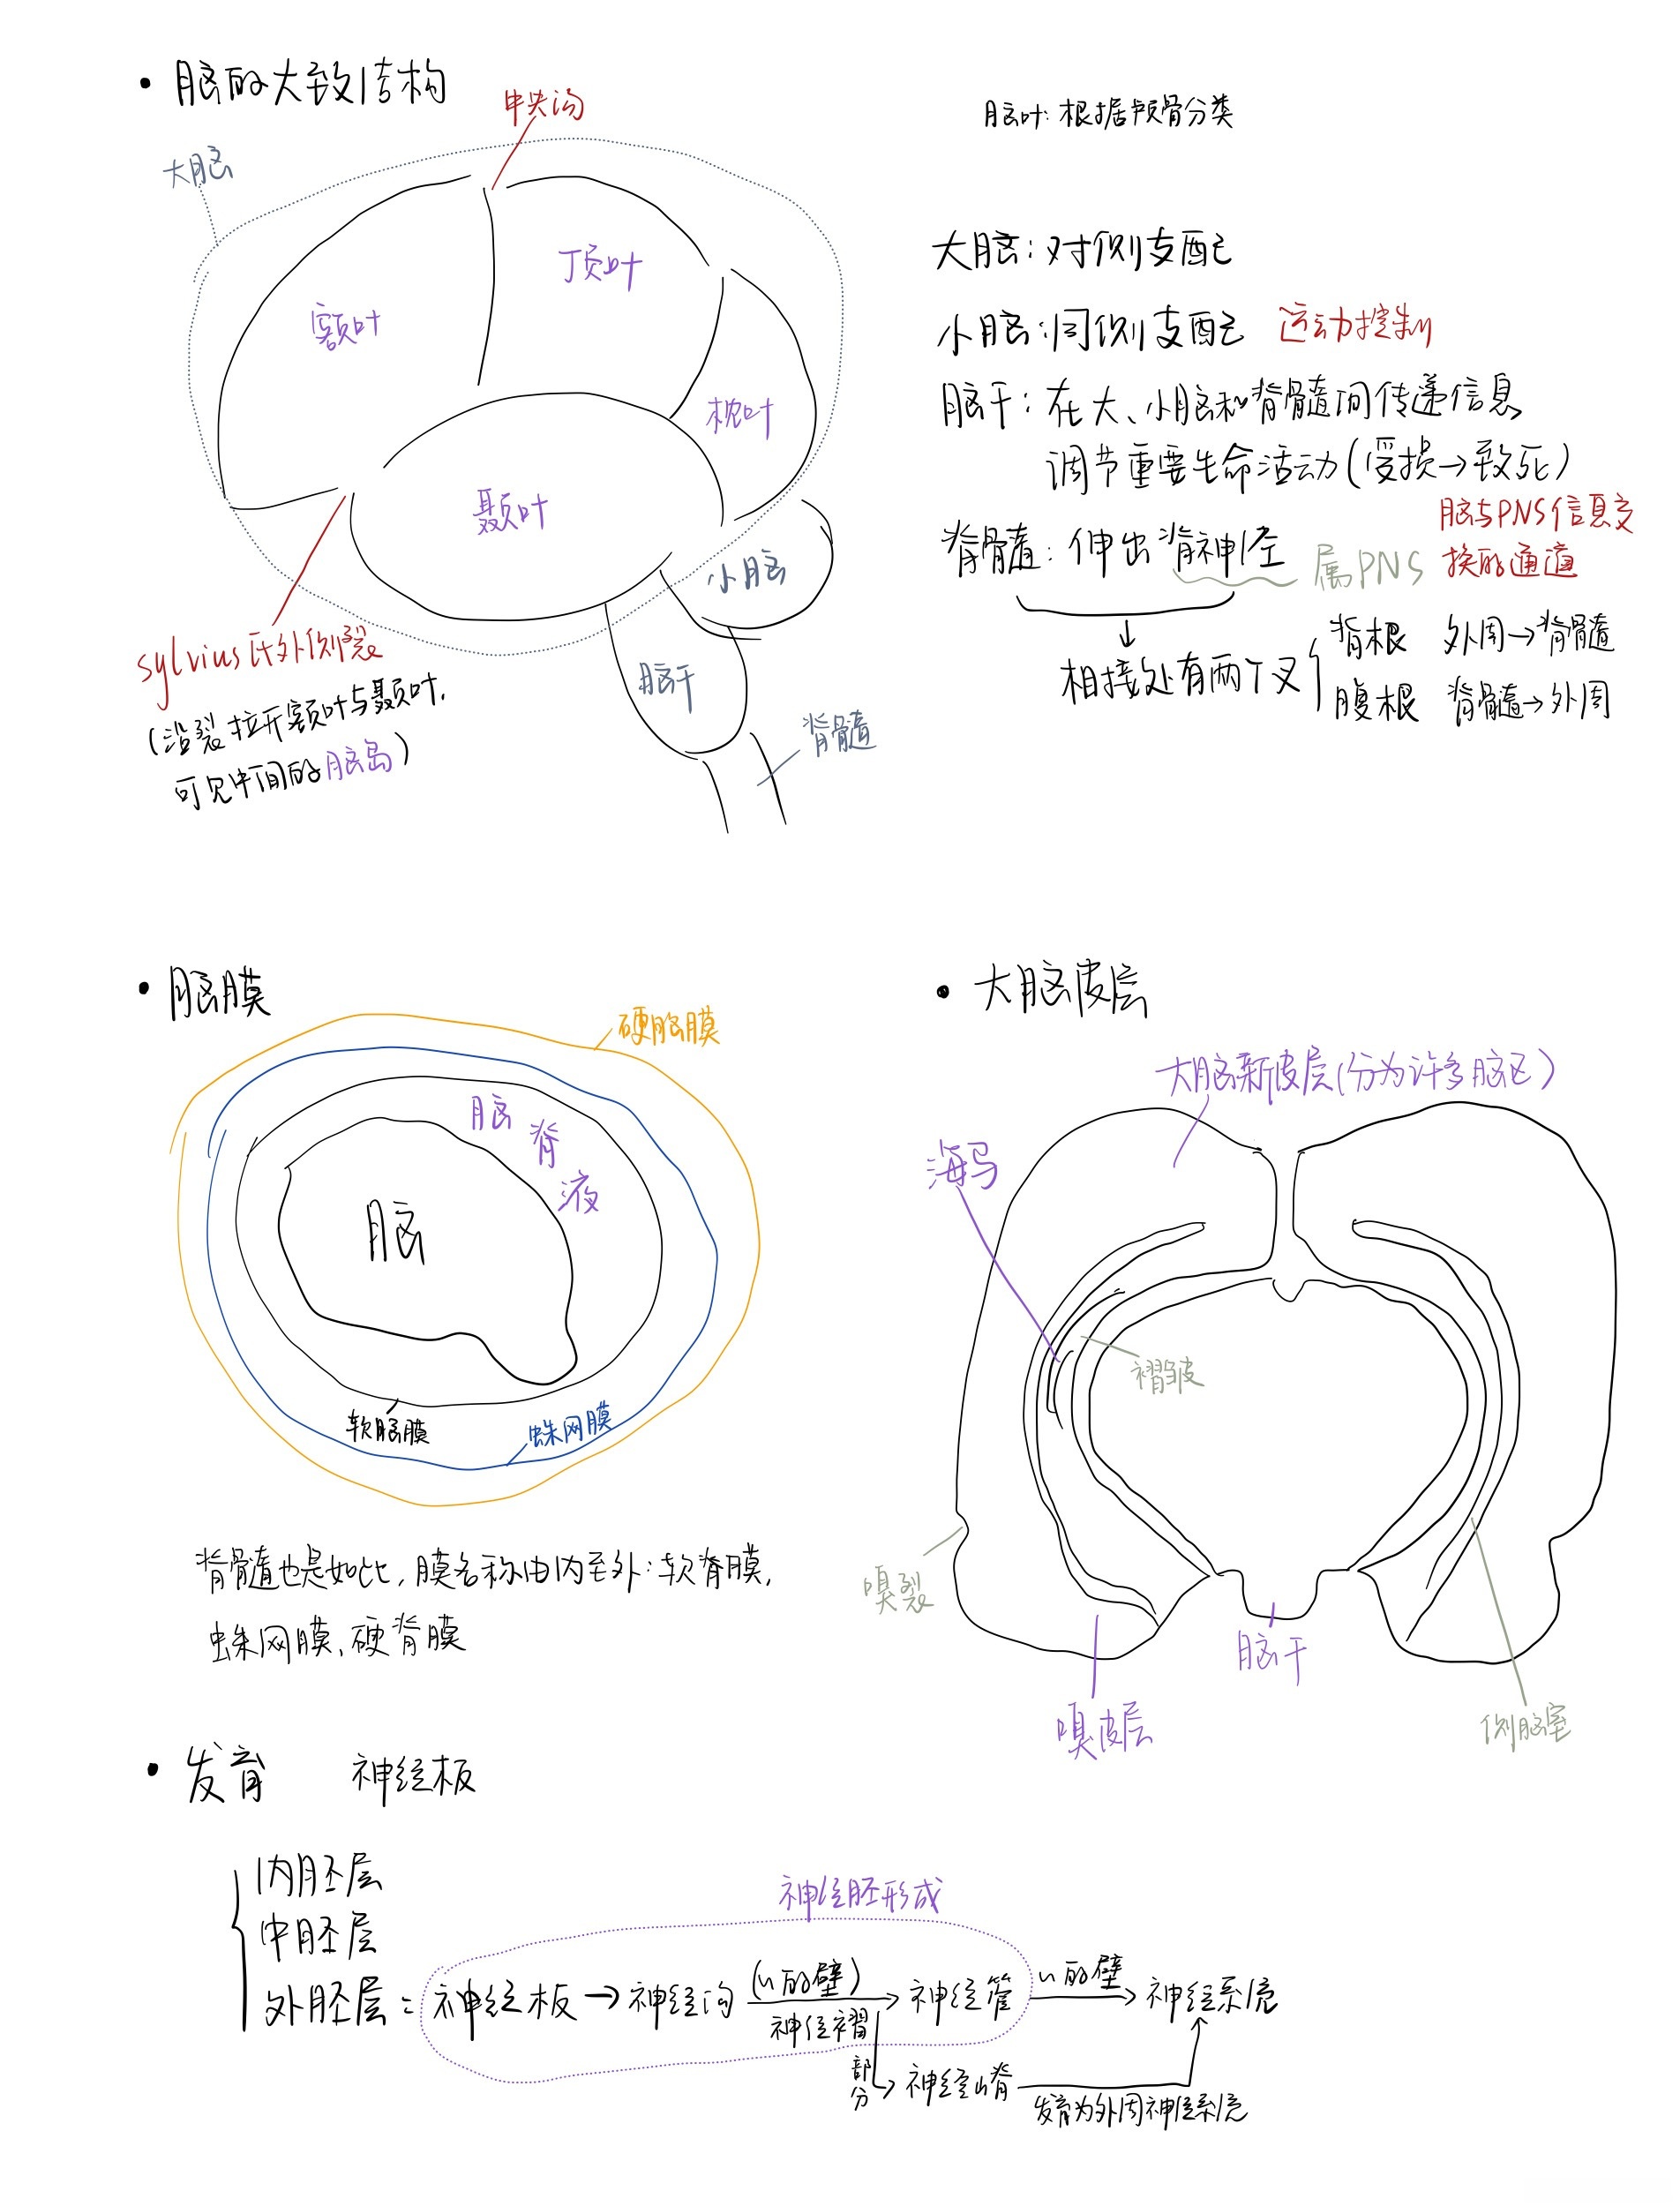 • 脑的大致结构
中央沟
大脑
顶叶
额叶
枕叶
颞叶
小脑
sylvius氏外侧裂
(沿裂拉开额叶与颞叶,
可见中间的脑岛)
脑干
脊髓
脑叶:根据颅骨分类
大脑:对侧支配
小脑:同侧支配 运动控制
脑干:在大、小脑和脊髓间传递信息
调节重要生命活动(受损→致死)
脊髓:伸出脊神经 属PNS
脑与PNS信息交
换的通道
↓
相接处有两个叉
背根 外周→脊髓
腹根 脊髓→外周
• 脑膜
硬脑膜
脑脊液
脑
软脑膜
蛛网膜
脊髓也是如此,膜名称由内至外:软脊膜,
蛛网膜,硬脊膜
• 大脑皮层
大脑新皮层(分为许多脑区)
海马
褶皱
嗅裂
脑干
嗅皮层
侧脑室
• 发育 神经板
内胚层
中胚层
神经胚形成
外胚层:神经板→神经沟 (~的壁) 神经褶 → 神经管 ~的壁 → 神经系统
部分 → 神经嵴 发育为外周神经系统